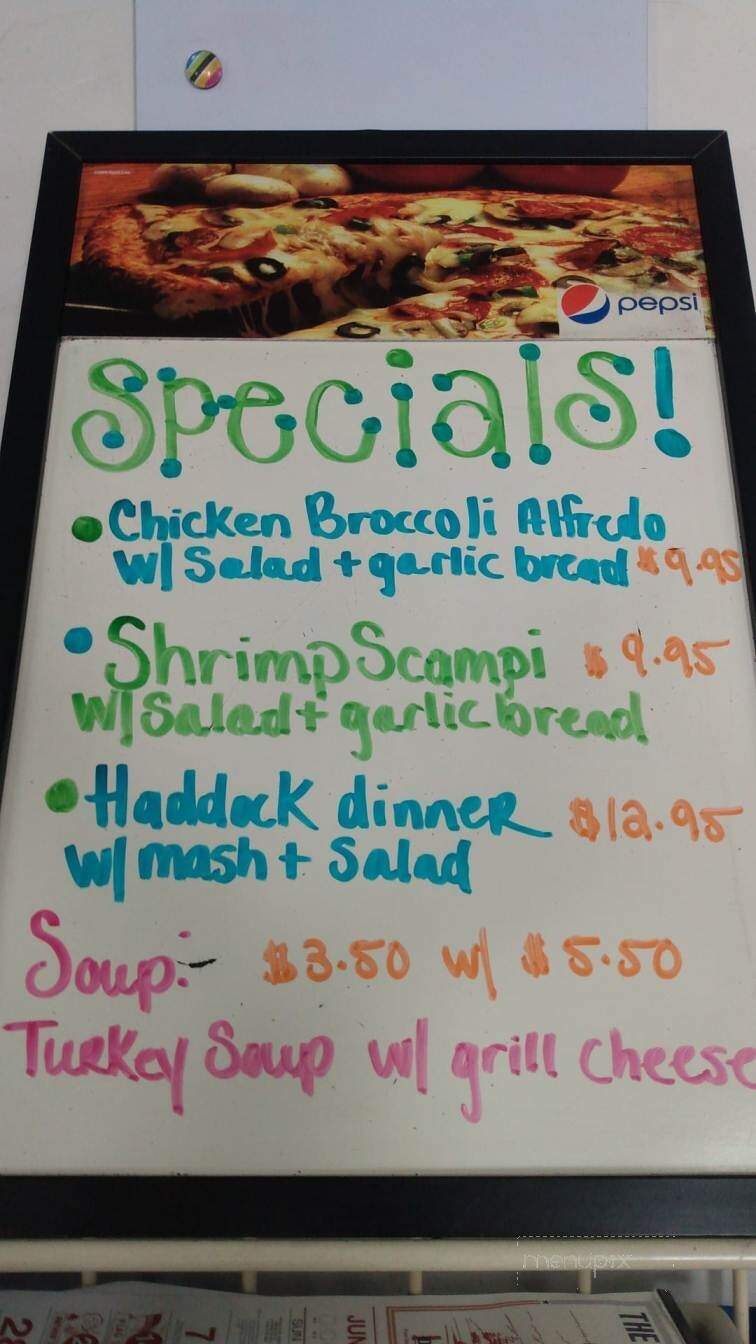 pepsi
Specials!
Chicken Broccoli Alfredo
w/ Salad + garlic bread $9.95
Shrimp Scampi $9.95
w/ Salad + garlic bread
Haddock dinner $12.95
w/ mash + Salad
Soup: $3.50 w/ $5.50
Turkey Soup w/ grill cheese
menupix
7
SUN
JUN
THE